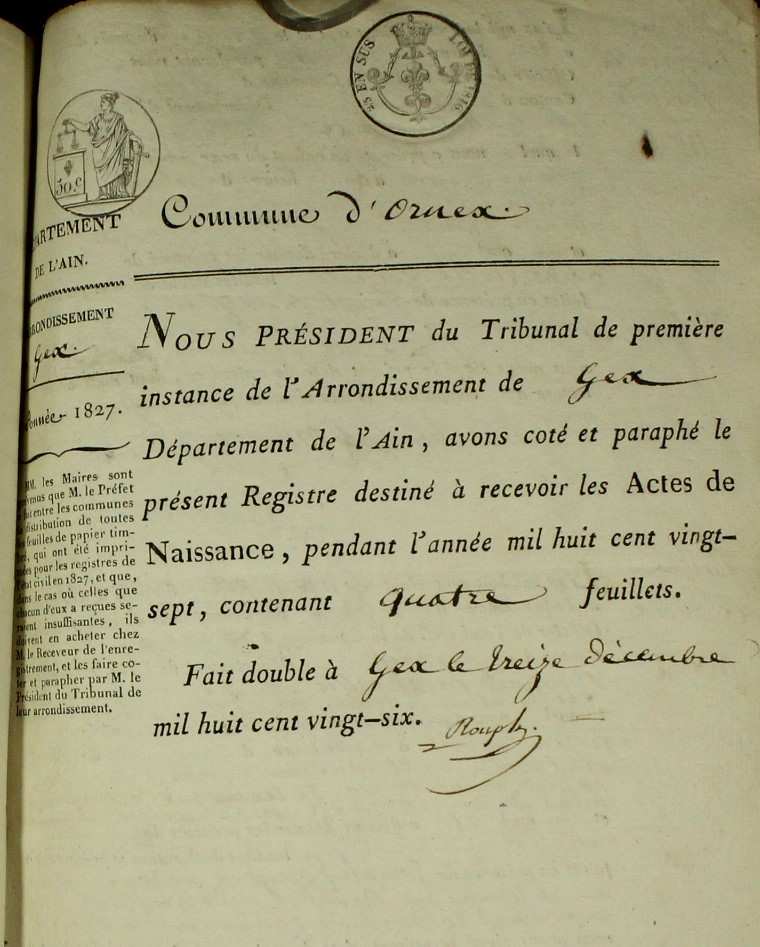 25 EN SUS LOI DE 1816
50 C
Commune d'Ornex.
PARTEMENT
DE L'AIN.
RONDISSEMENT
Gex.
Année 1827.
MM. les Maires sont
venus que M. le Préfet
fait entre les communes
distribution de toutes
feuilles de papier tim-
bré, qui ont été impri-
mées pour les registres de
l'état civil en 1827, et que,
dans le cas où celles que
chacun d'eux a reçues se-
raient insuffisantes, ils
doivent en acheter chez
M. le Receveur de l'enre-
gistrement, et les faire co-
ter et parapher par M. le
Président du Tribunal de
leur arrondissement.
NOUS PRÉSIDENT du Tribunal de première
instance de l'Arrondissement de Gex
Département de l'Ain, avons coté et paraphé le
présent Registre destiné à recevoir les Actes de
Naissance, pendant l'année mil huit cent vingt-
sept, contenant quatre feuillets.
Fait double à Gex le treize décembre
mil huit cent vingt-six.